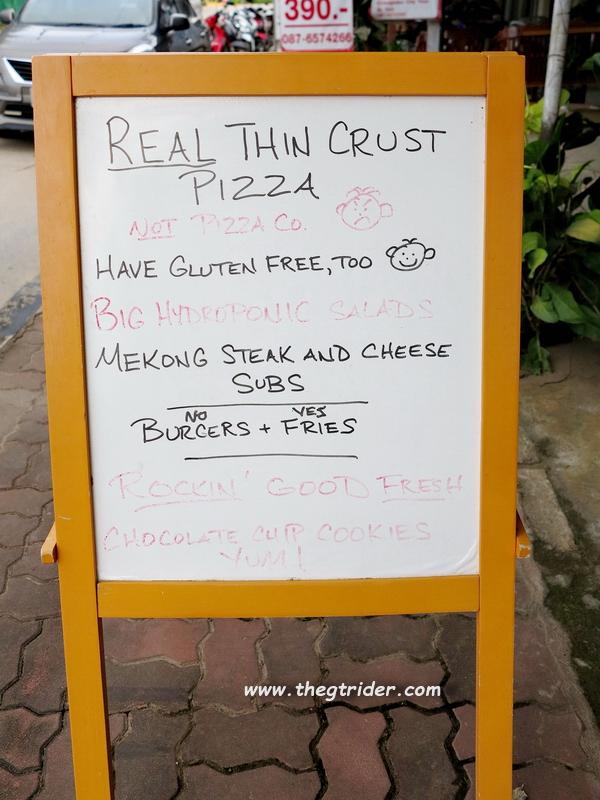 390.-
087-6574266
REAL THIN CRUST
PIZZA
NOT PIZZA CO.
HAVE GLUTEN FREE, TOO
BIG HYDROPONIC SALADS
MEKONG STEAK AND CHEESE
SUBS
NO YES
BURGERS + FRIES
ROCKIN' GOOD FRESH
CHOCOLATE CHIP COOKIES
YUM!
www.thegtrider.com